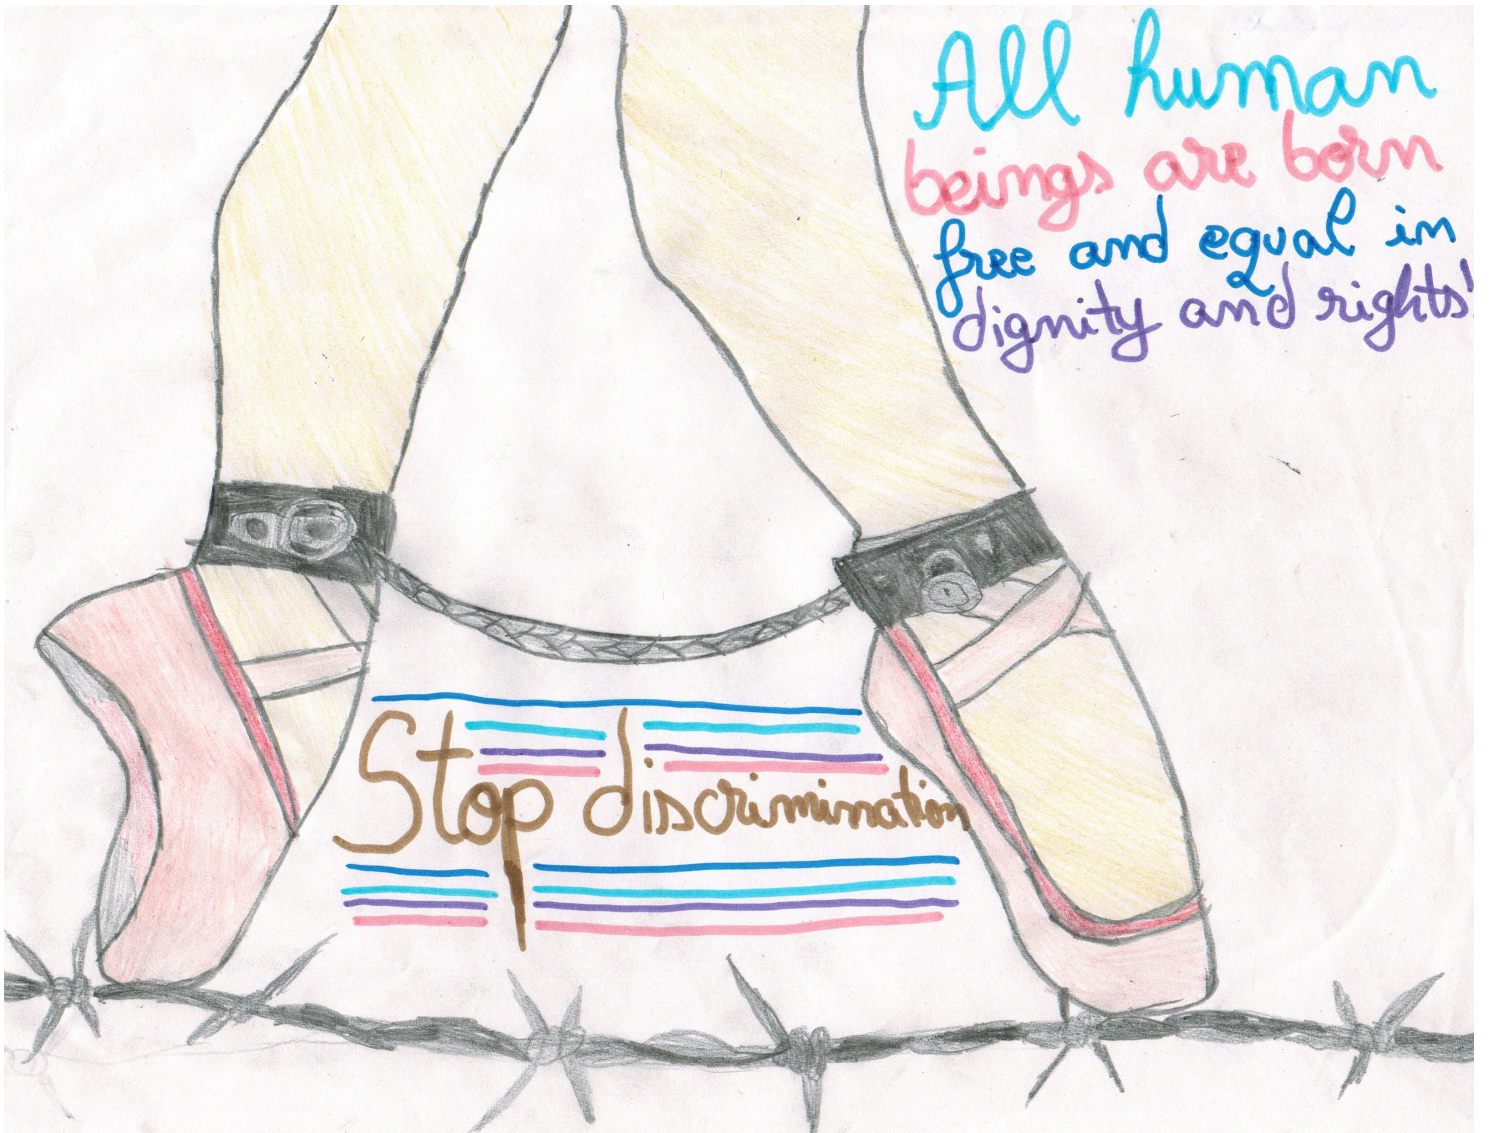 All human
beings are born
free and equal in
dignity and rights!
Stop discrimination